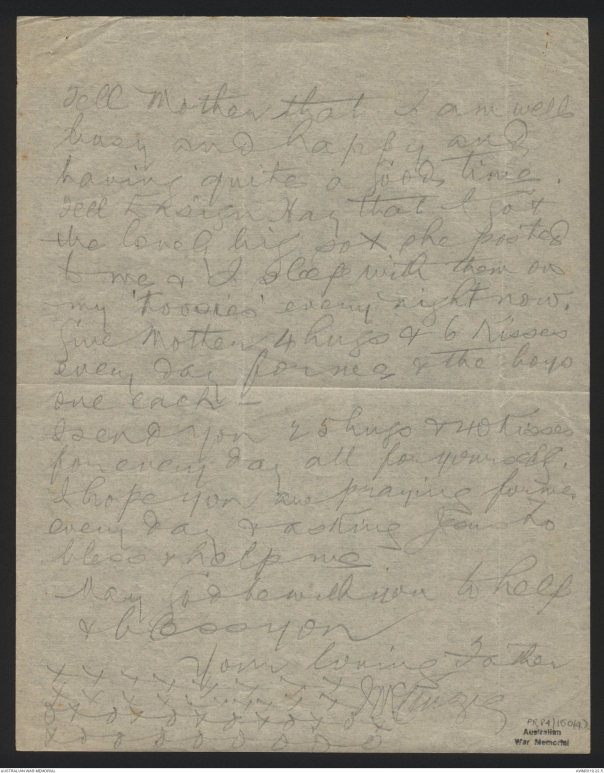 Tell Mother that I am well
busy and happy and
having quite a good time.
Tell that I got
the lovely big sox she posted
to me & I sleep with them on
my 'toosies' every night now.
Give Mother 4 hugs & 6 kisses
every day for me & the boys
one each —
I send you 25 hugs & 40 kisses
for every day all for yourself.
I hope you are praying for me
every day & asking Jesus to
bless & help me
May God be with you to help
& bless you
Your loving Father
Australian
War Memorial
AUSTRALIAN WAR MEMORIAL